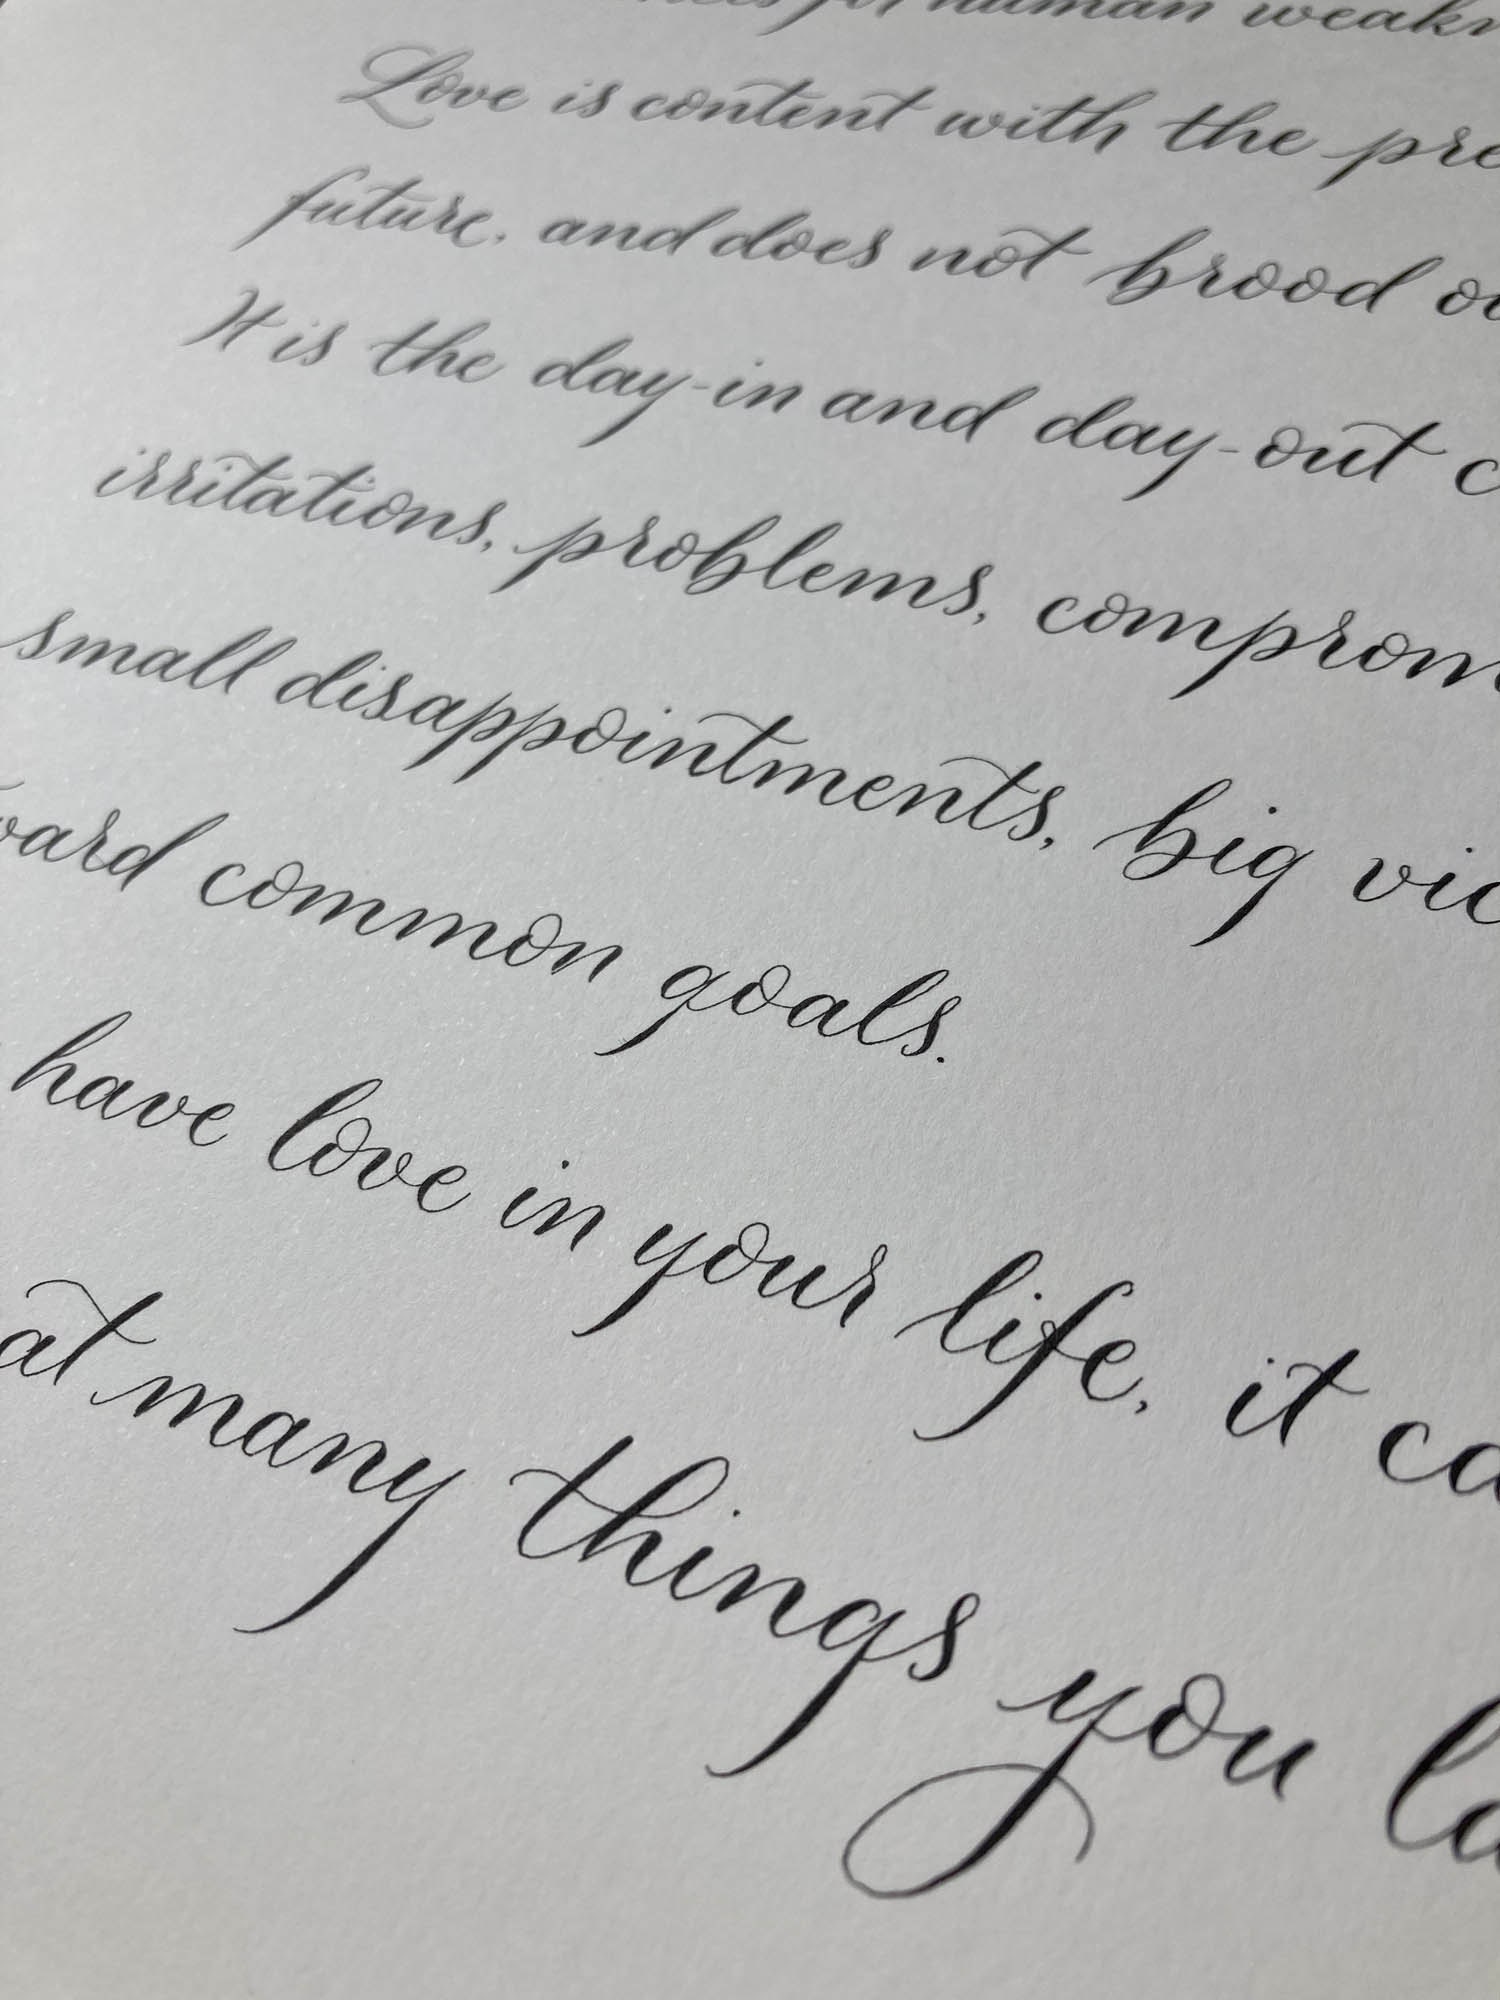 for human
Love is content with the
future, and does not brood
It is the day-in and day-out
irritations, problems,
small disappointments, big
common goals.
have love in your life, it
at many things you